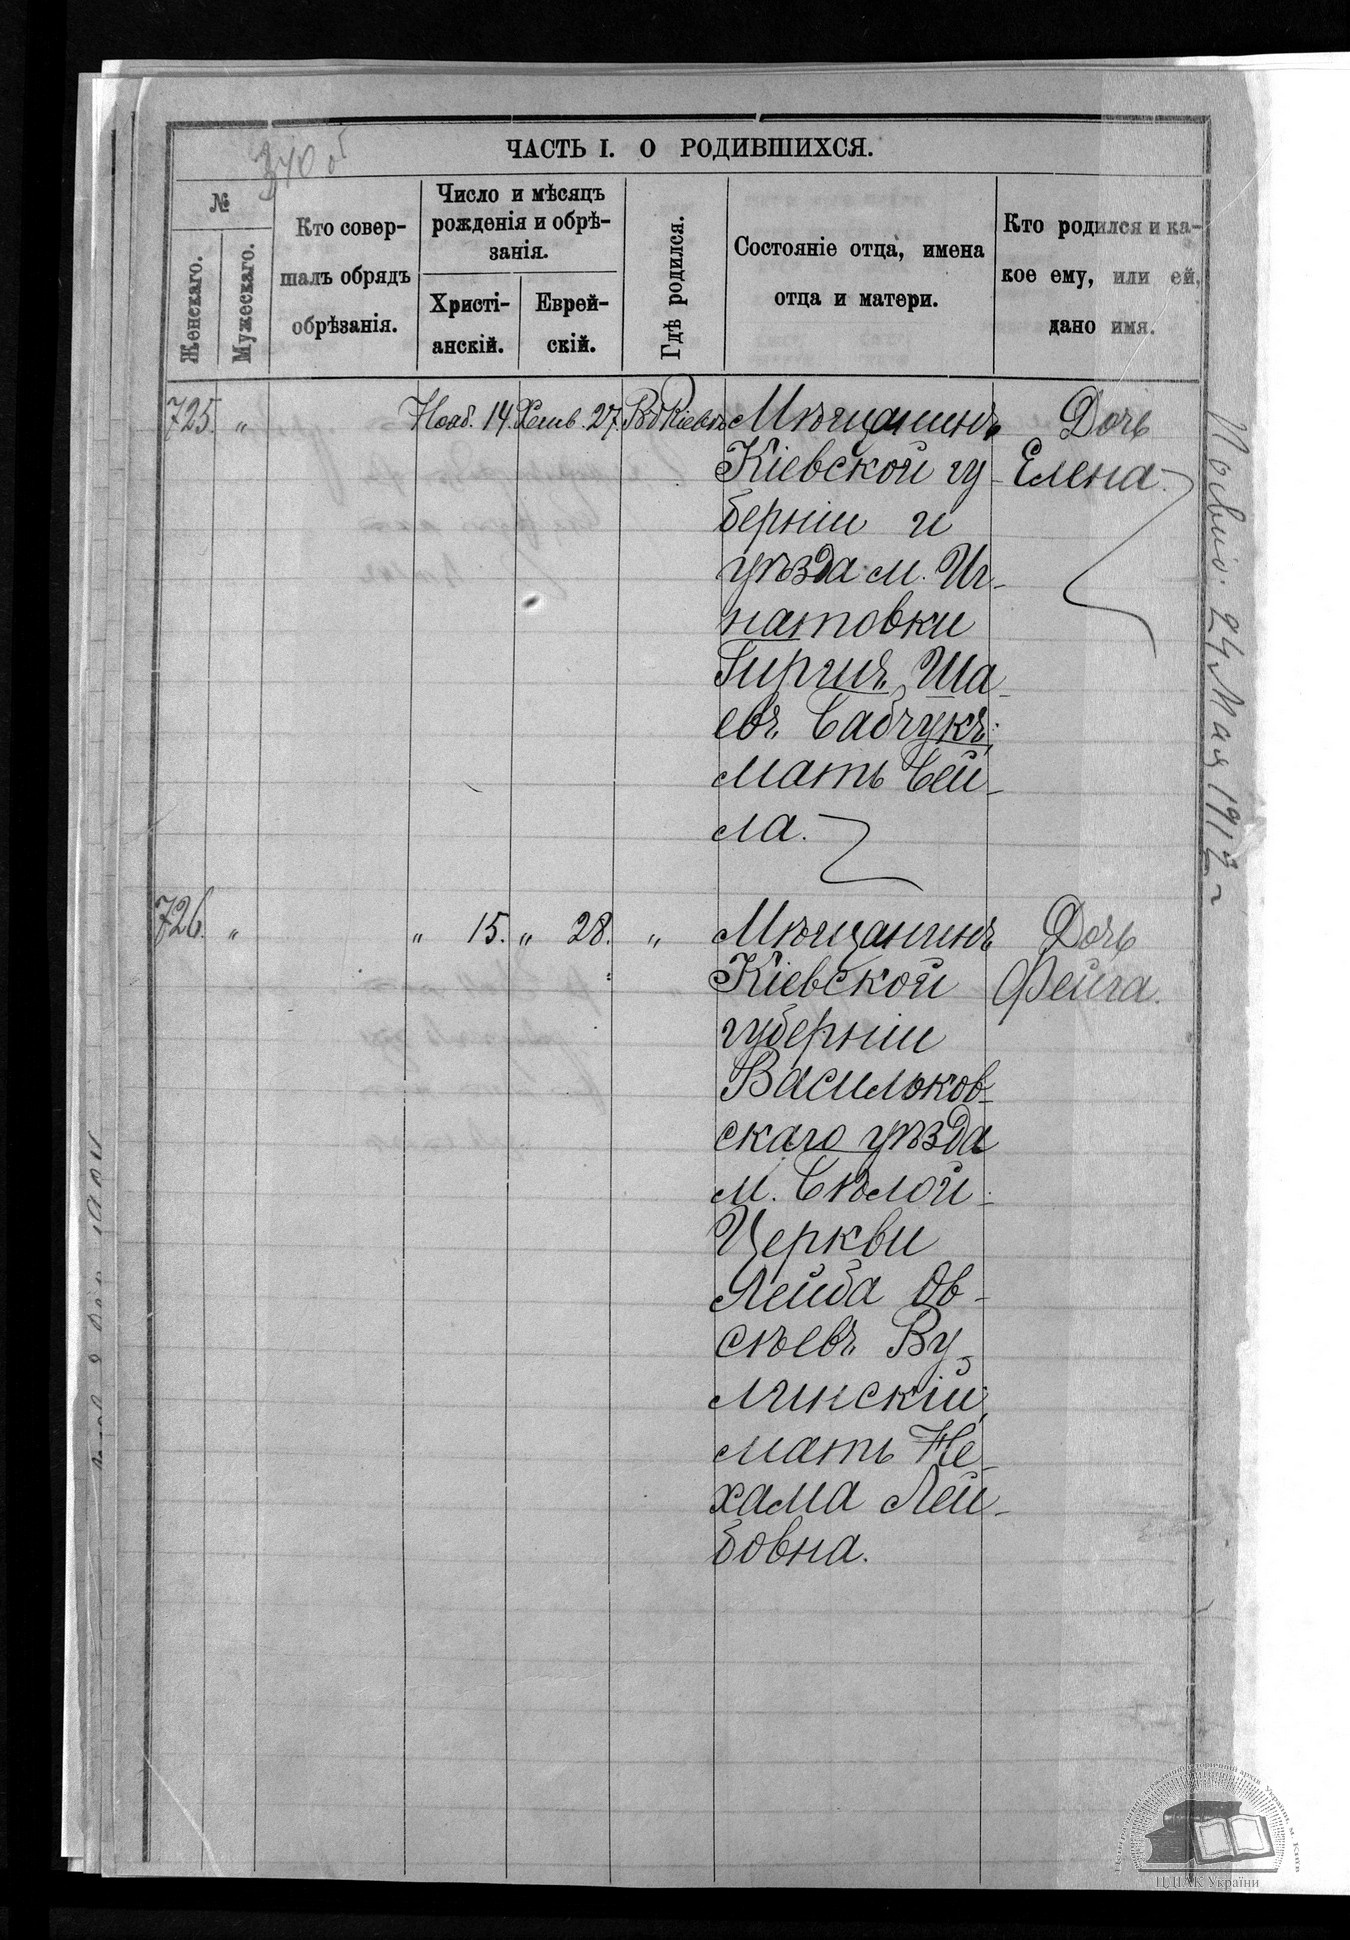 340 об
ЧАСТЬ I. О РОДИВШИХСЯ.
№
Женскаго.
Мужескаго.
Кто совер-
шалъ обрядъ
обрѣзанія.
Число и мѣсяцъ
рожденія и обрѣ-
занія.
Христі-
анскій.
Еврей-
скій.
Гдѣ родился.
Состояніе отца, имена
отца и матери.
Кто родился и ка-
кое ему, или ей,
дано имя.
725. " Нояб. 14. Хешв. 27. Въ Кіевѣ Мѣщанинъ Дочь
Кіевской гу- Елена.
берніи и
уѣзда м. Иг-
натовки
Гиршъ Ша-
евъ Бабчукъ;
мать Бей-
ла.
726. " " 15. " 28. " Мѣщанинъ Дочь
Кіевской Фейга.
губерніи
Васильков-
скаго уѣзда
м. Бѣлой-
Церкви
Лейба Ов-
сѣевъ Ву-
линскій;
мать Не-
хама Лей-
бовна.
24 Мая 1917 г
ЦДІАК України